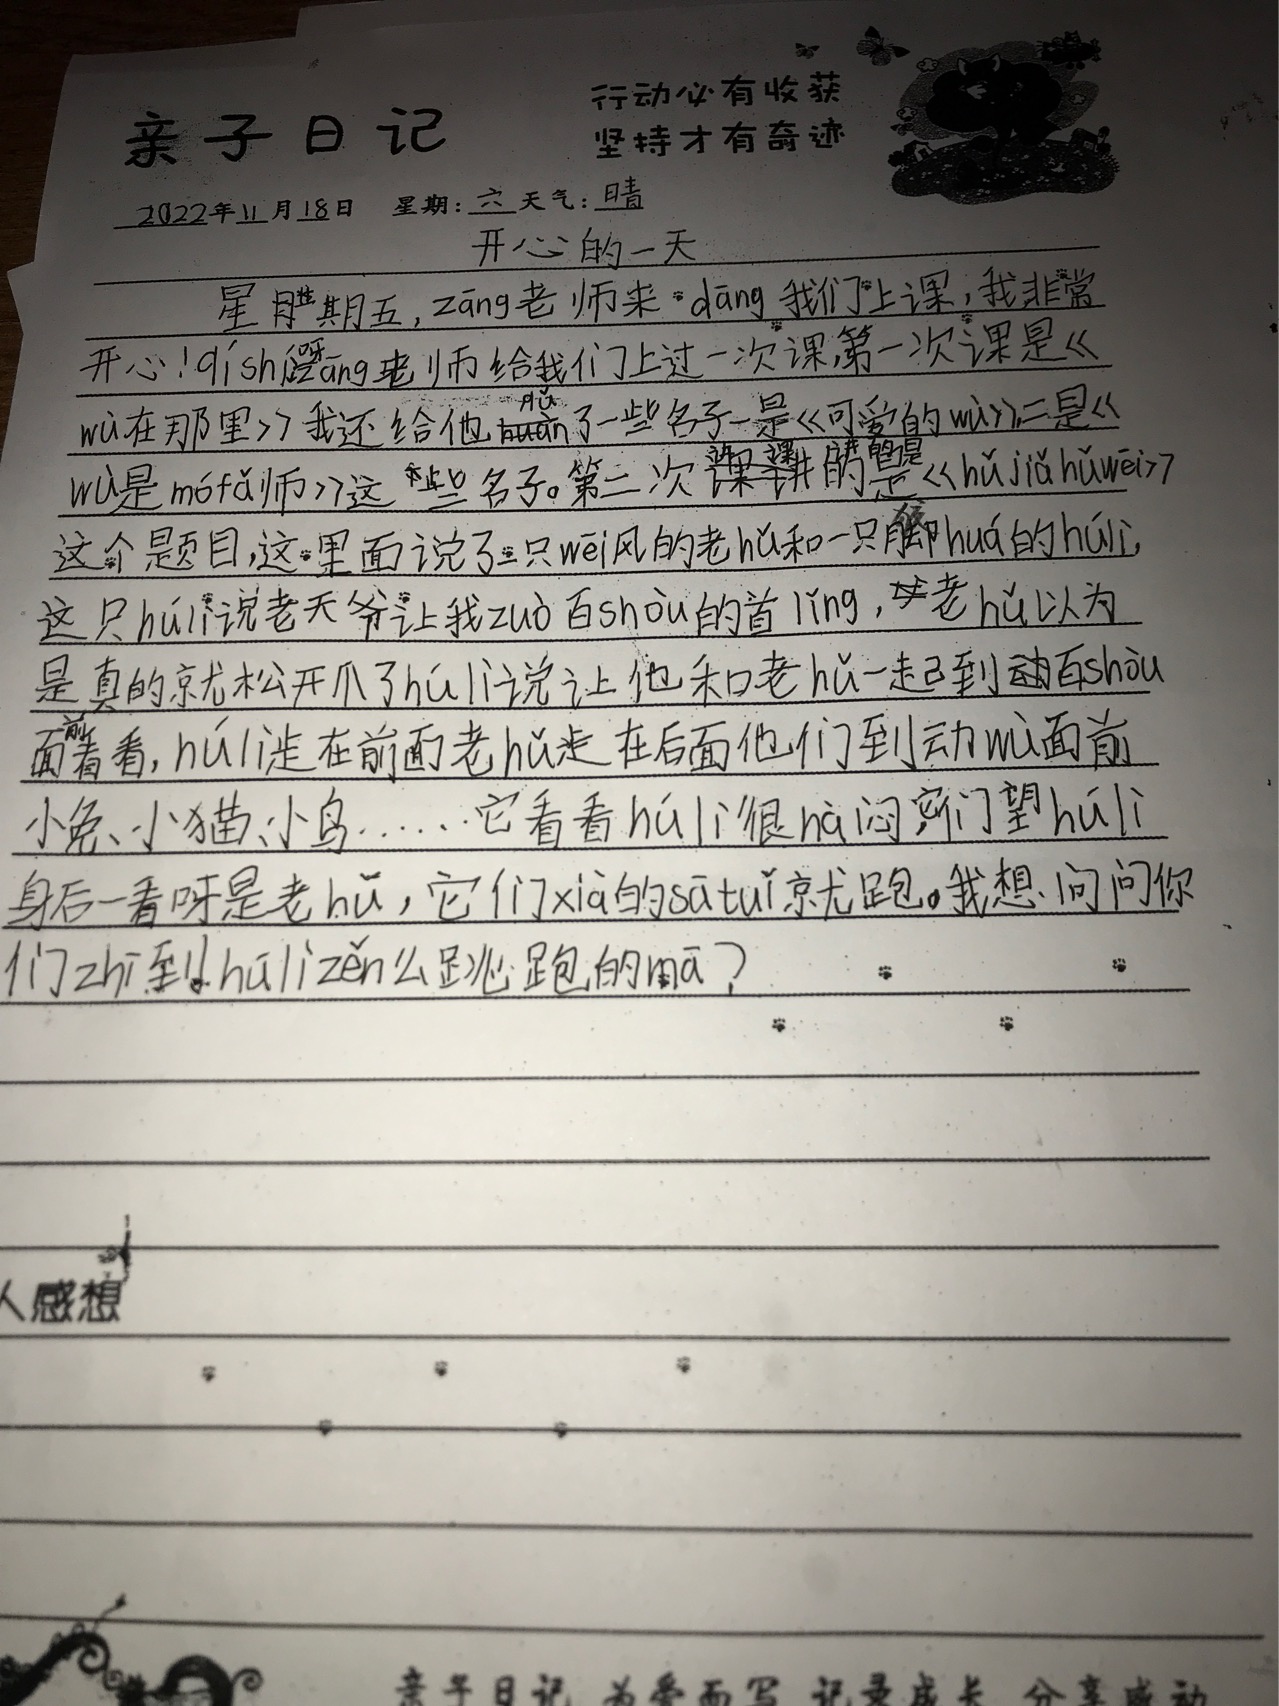 亲子日记
行动必有收获
坚持才有奇迹
2022年11月18日 星期:六 天气:晴
开心的一天
星期五，zāng老师来 dāng我们上课，我非常
开心！qíshízāng老师给我们上过一次课,第一次课是《
wù在那里》我还给他qǔ了一些名子一是《可爱的wù》,二是《
wù是mófǎ师》这些名子。第二次课讲的是《hǔjiǎhǔwēi》
这个题目,这里面说了一只wēi风的老hǔ和一只脚huá的húli,
这只húli说老天爷让我zuò百shòu的首lǐng，老hǔ以为
是真的就松开爪了húli说让他和老hǔ一起到百shòu
面前看看,húli走在前面老hǔ走在后面他们到动wù面前
小兔、小猫、小鸟......它看看húli很nà闷,它们望húli
身后一看呀是老hǔ，它们xià的sātuǐ就跑。我想问问你
们zhī到húlizěn么跳跑的mā？
人感想
亲子日记 为爱而写 记录成长 分享感动